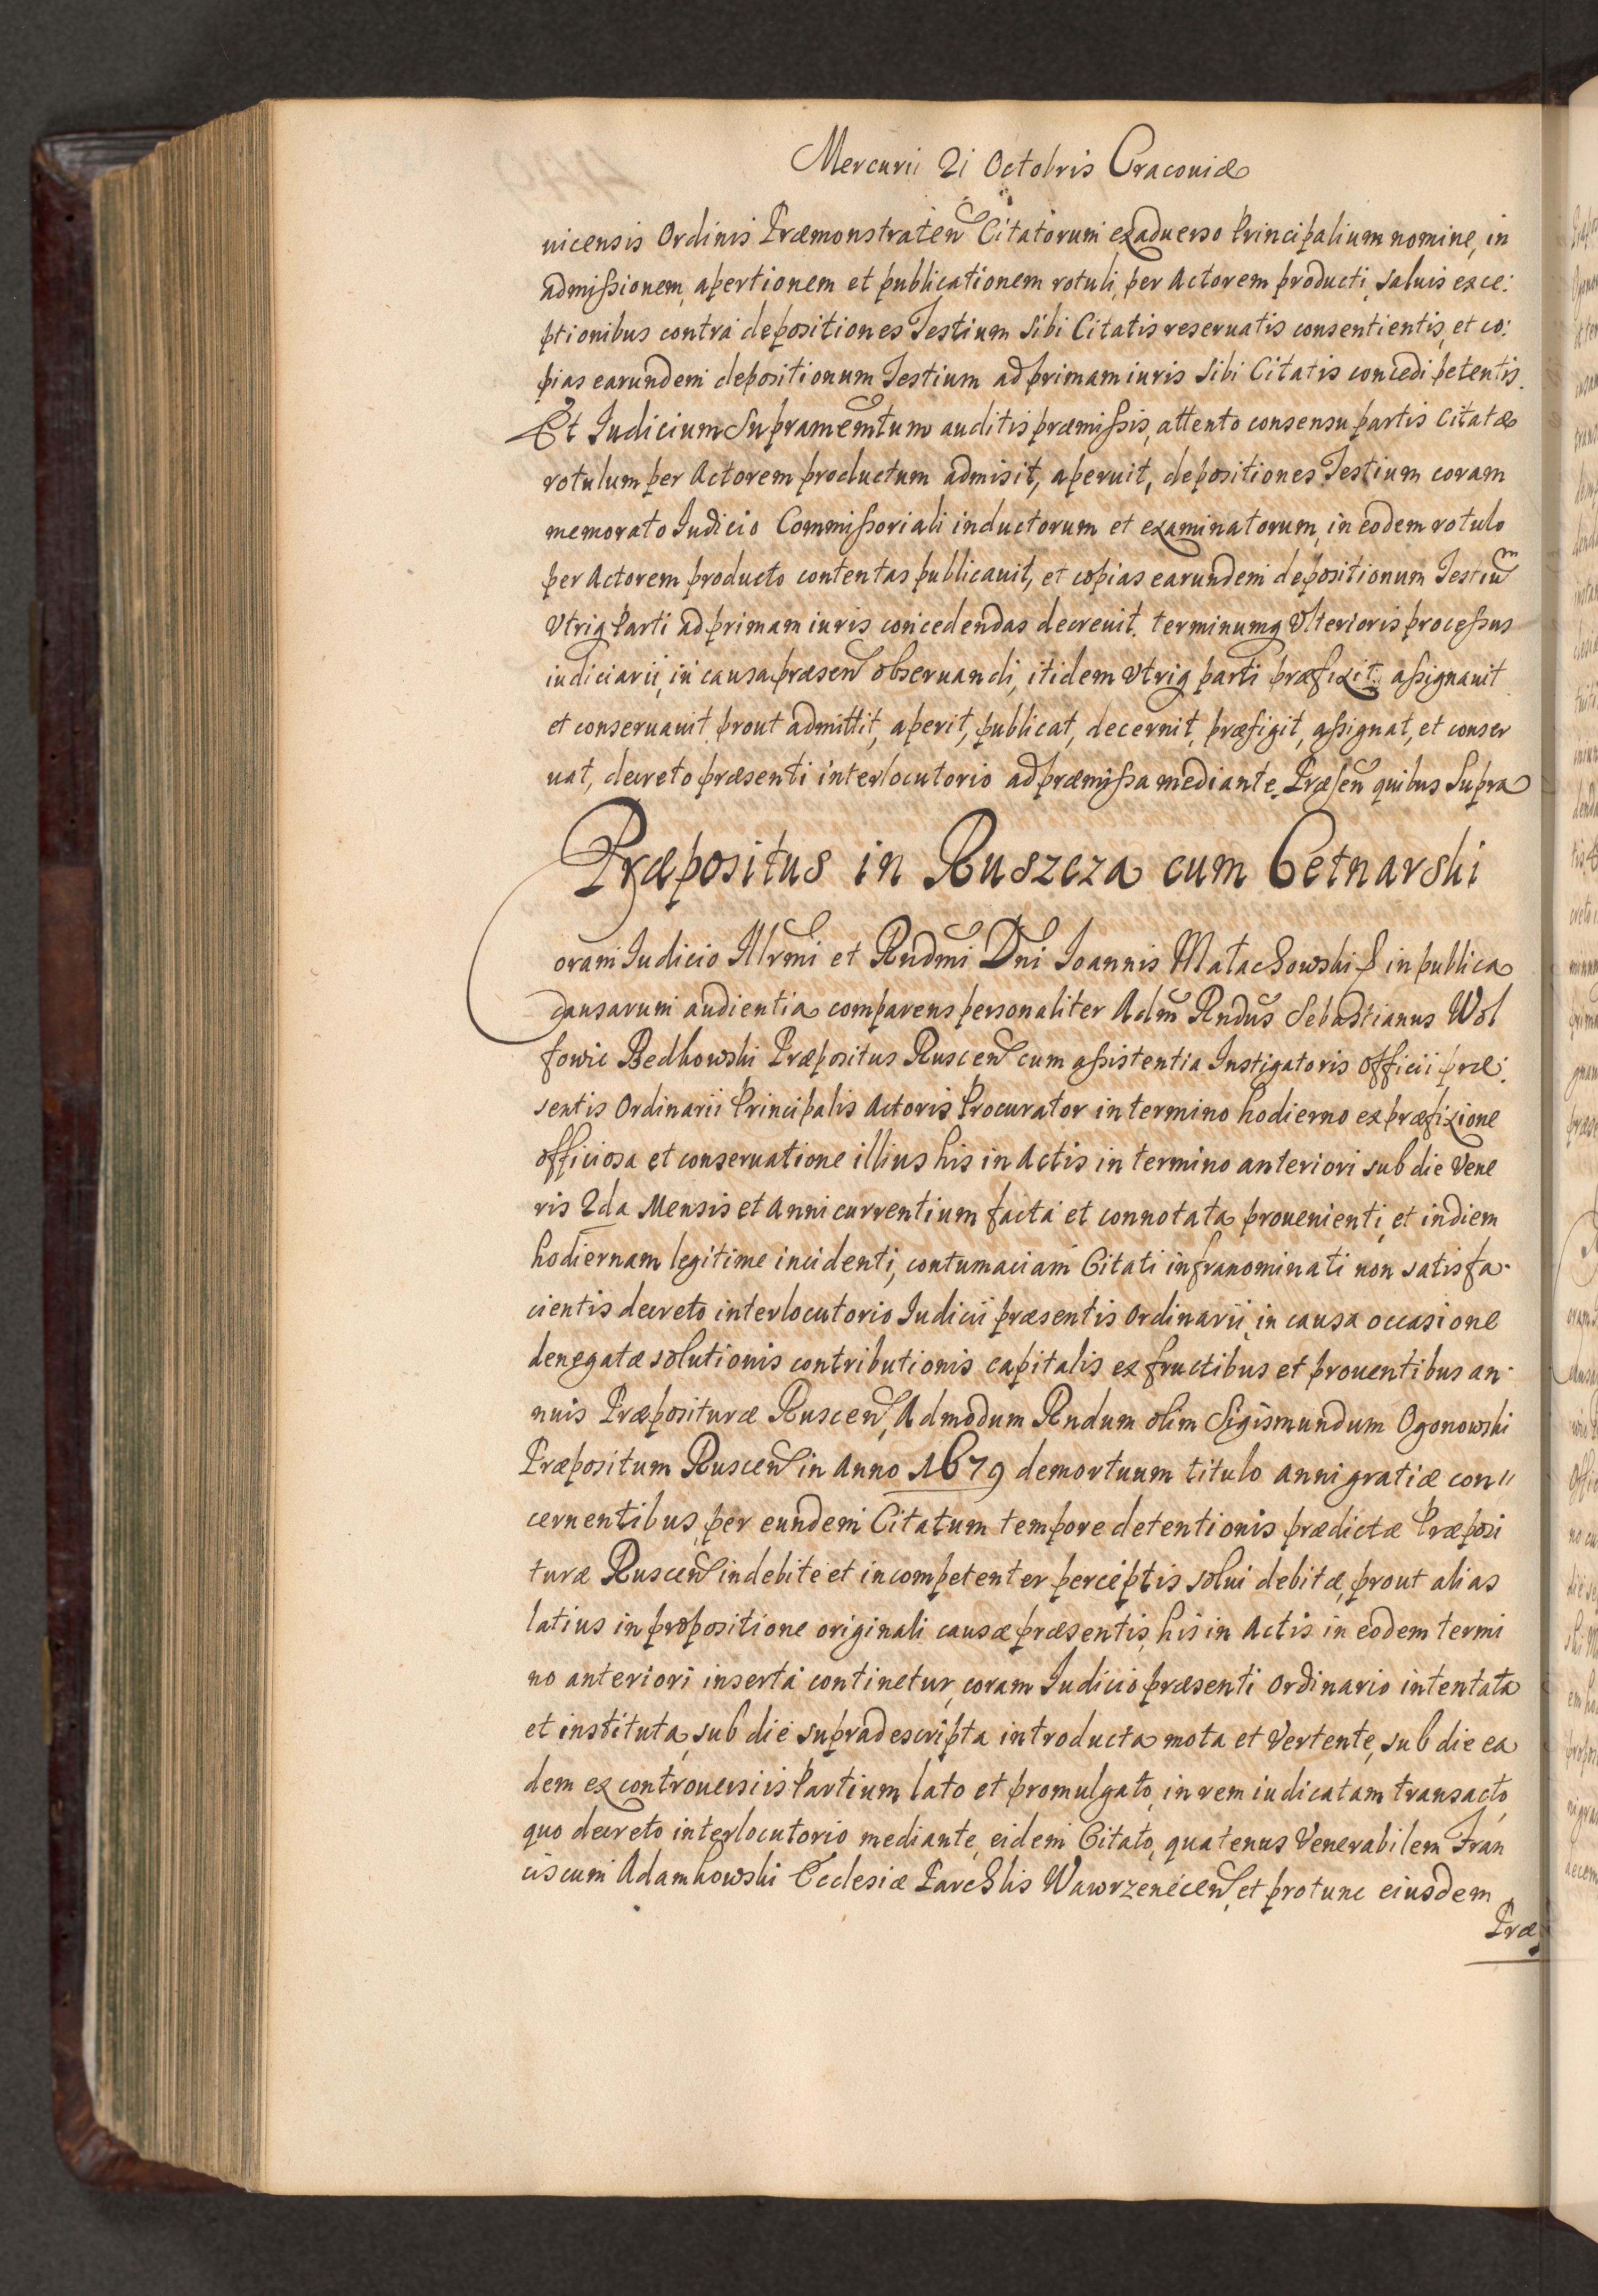 Mercurii 21 Octobris Cracouiæ
uicensis Ordinis Præmonstraten Citatorum exaduerso Principalium nomine, in
admissionem, apertionem et publicationem rotuli, per Actorem producti, saluis exce:
ptionibus contra depositiones Testium sibi Citatis reseruatis consentientis, et co:
pias earundem depositionum Testium ad primam iuris sibi Citatis concedi petentis.
Et Iudicium Supramemtum auditis præmissis, attento consensu partis citatæ
rotulum per Actorem productum admisit, aperuit, depositiones Testium coram
memorato Iudicio Commissoriali inductorum et examinatorum, in eodem rotulo
per Actorem producto contentas publicauit, et copias earundem depositionum Testium
Vtriq Parti ad primam iuris concedendas decreuit. terminumq Vlterioris processus
iudiciarii, in causa præsen obseruandi, itidem Vtriq parti præfixit assignauit
et conseruauit prout admittit, aperit, publicat, decernit, præfigit, assignat, et conser
uat, decreto præsenti interlocutorio ad præmissa mediante. Præsen quibus Supra
Præpositus in Ruszcza cum Cetnarski
Coram Iudicio Illrmi et Rndmi Dni Ioannis Małachowski &c in publica
causarum audientia comparens personaliter Adm Rndus Sebastianus Wol
fowic Bedkowski Præpositus Ruscen cum assistentia Instigatoris Officii præ:
sentis Ordinarii Principalis Actoris Procurator in termino hodierno ex præfixione
officiosa et conseruatione illius his in Actis in termino anteriori sub die Vene
ris 2da Mensis et Anni currentium facta et connotata prouenienti, et in diem
hodiernam legitime incidenti, contumaciam Citati infranominati non satisfa:
cientis decreto interlocutorio Iudicii præsentis Ordinarii, in causa occasione
denegatæ solutionis contributionis capitalis ex fructibus et prouentibus an:
nuis Præposituræ Ruscen, Admodum Rndum olim Sigismundum Ogonowski
Præpositum Ruscen in Anno 1679 demortuum titulo anni gratiæ con"
cernentibus, per eundem Citatum tempore detentionis prædictæ Præposi
turæ Ruscen indebite et incompetenter perceptis solui debitæ, prout alias
latius in propositione originali causæ præsentis, his in Actis in eodem termi
no anteriori inserta continetur, coram Iudicio præsenti Ordinario intentata
et instituta, sub die supradescripta introducta mota et Vertente, sub die ea
dem ex controuersiis Partium lato et promulgato, in rem iudicatam transacto,
quo decreto interlocutorio mediante, eidem Citato, quatenus Venerabilem Fran
ciscum Adamkowski Ecclesiæ Parchlis Wawrzenécen, et protunc eiusdem
Præ